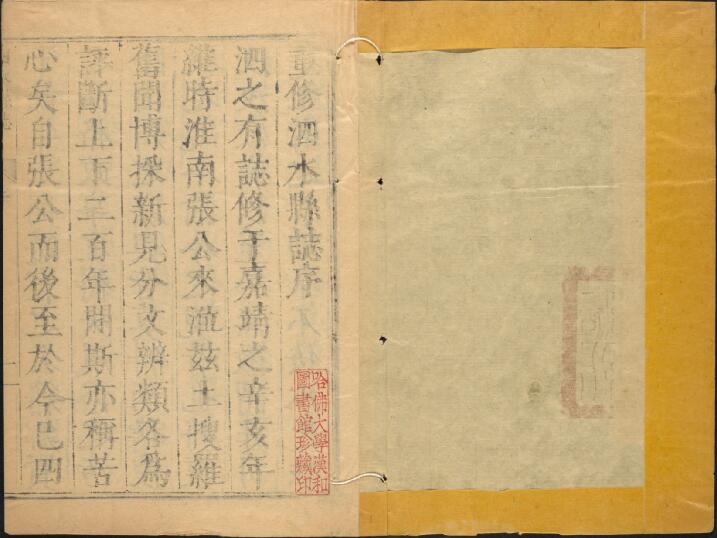 重修泗水縣誌序
泗之有誌修于嘉靖之辛亥年
維時淮南張公來涖茲土搜羅
舊聞博採新見分文辨類各為
評斷上下三百年間斯亦稱苦
心矣自張公而後至於今已四
哈佛大學漢和
圖書館珍藏印